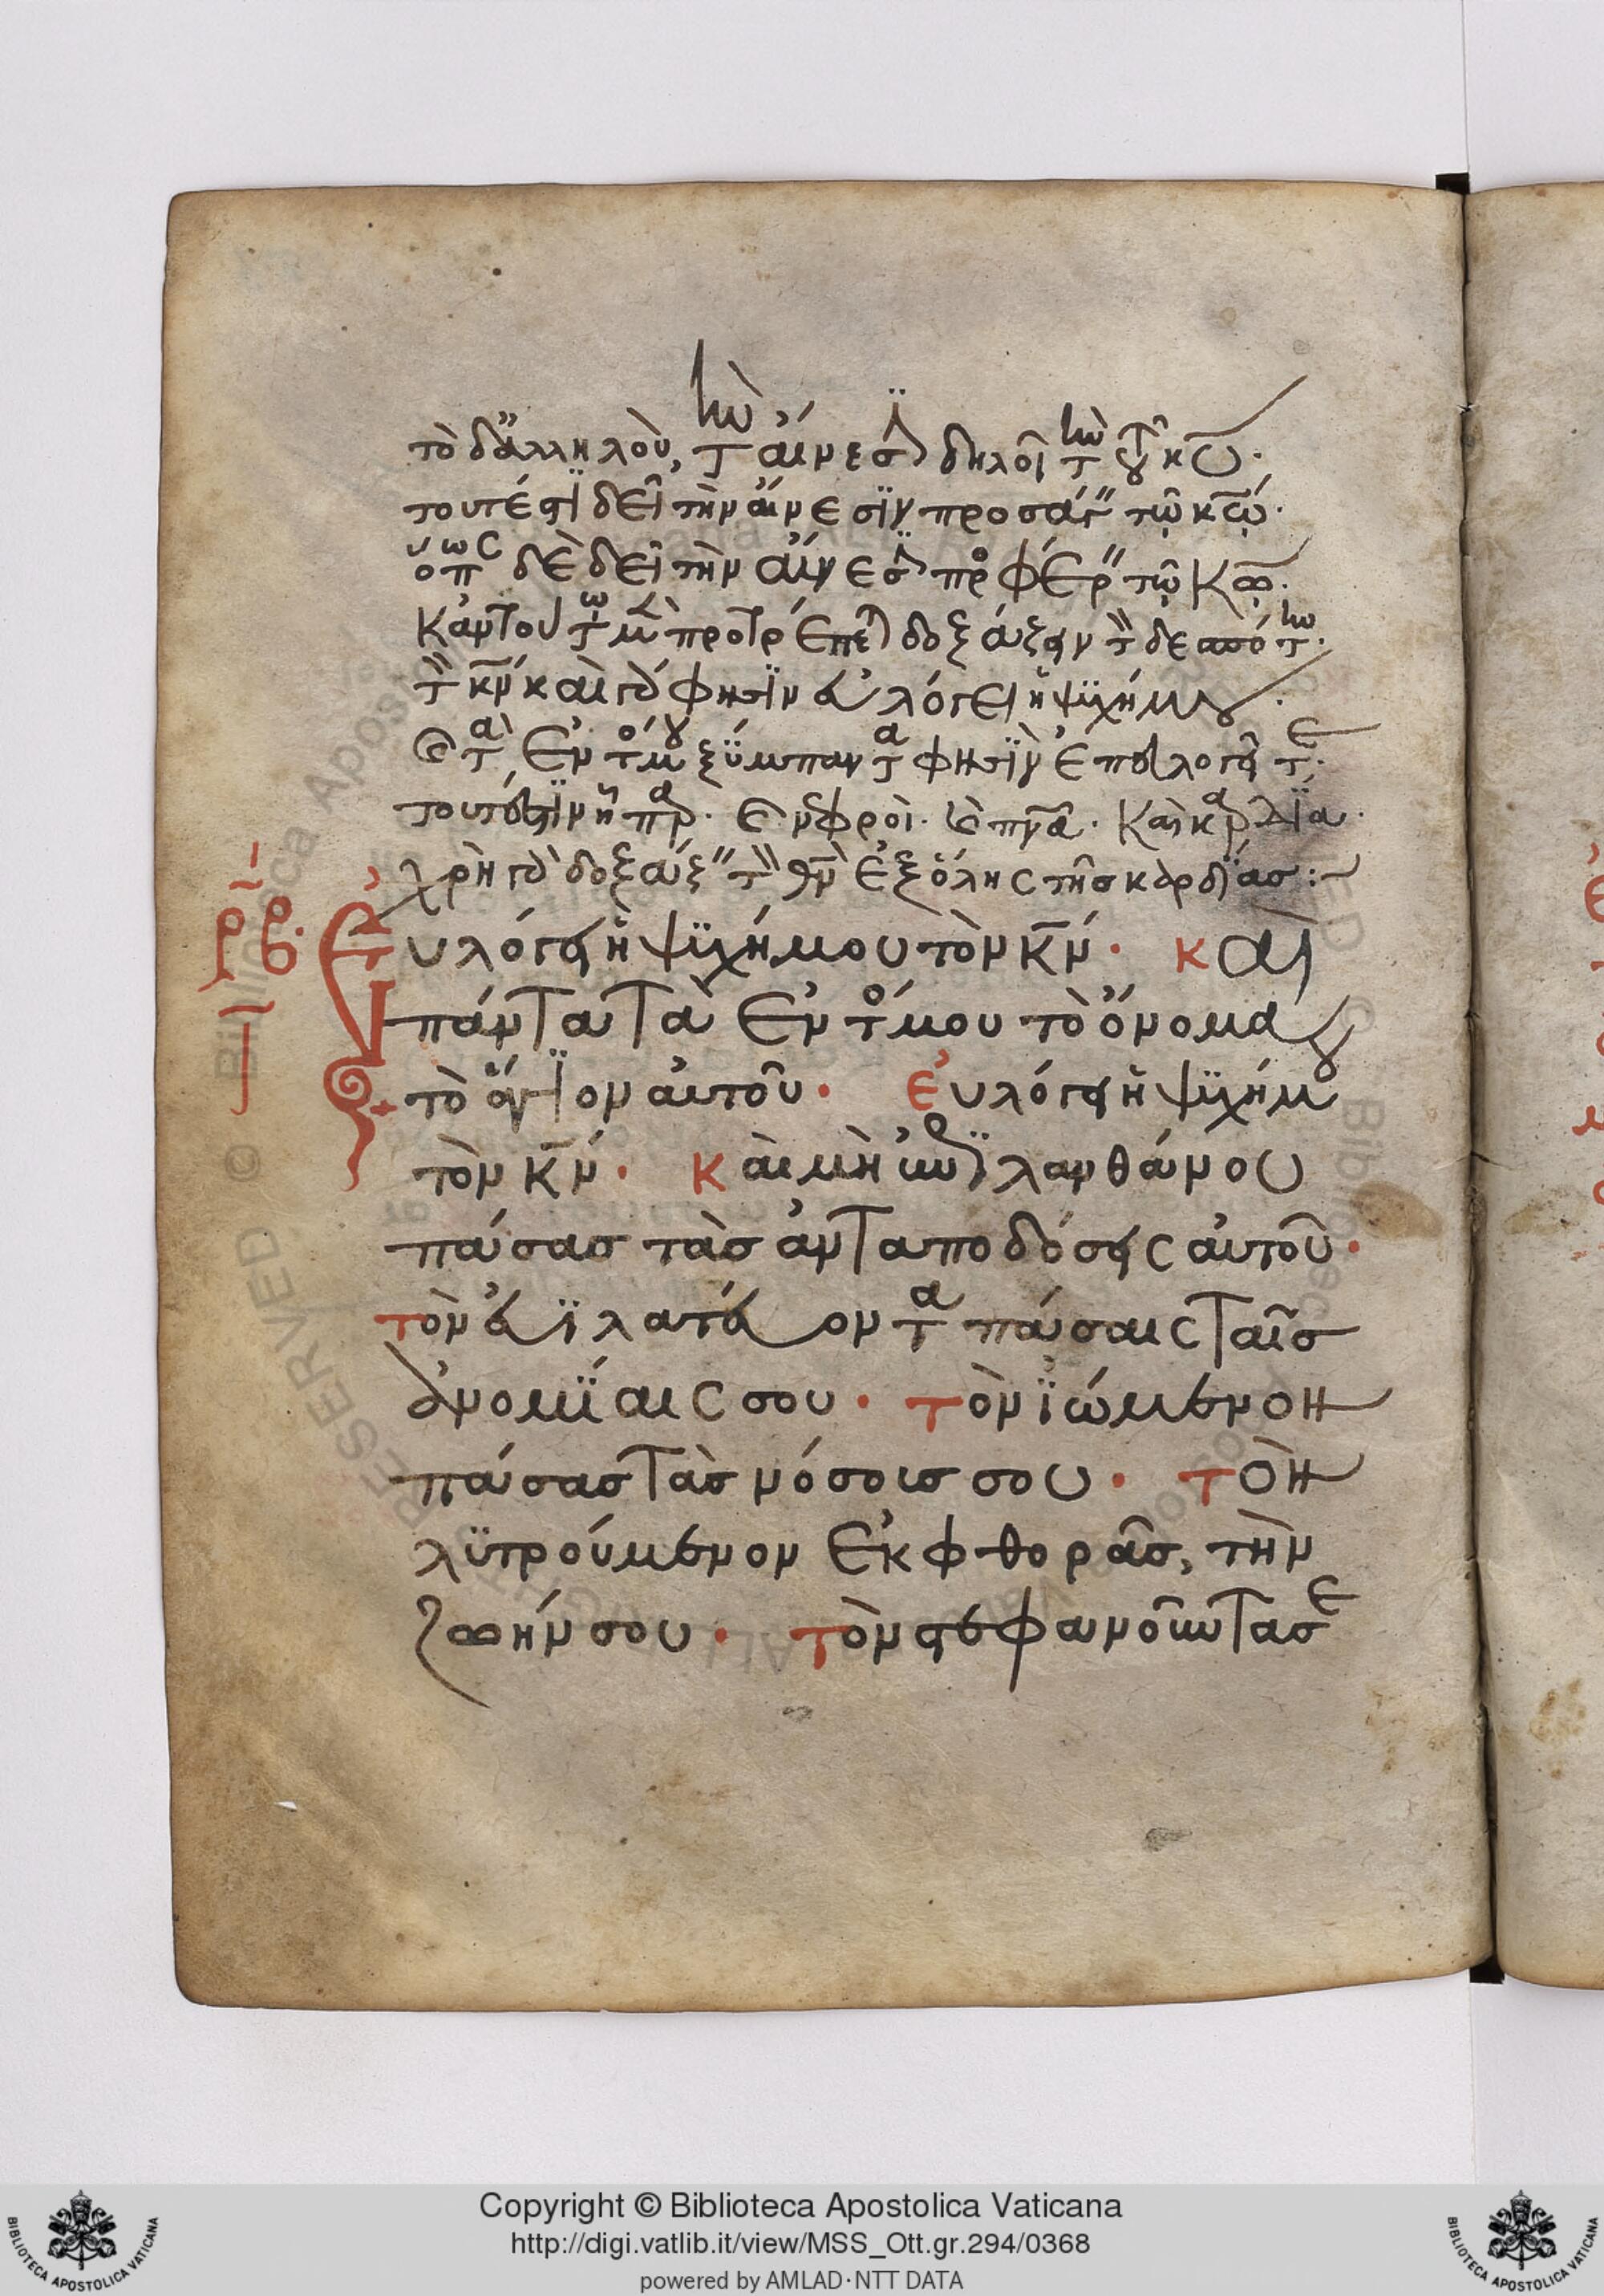 το δ ἀλληλού, τ αίνεσ δηλοῖ τ τοῦ κυ·
τουτέστι δεῖ τὴν αἴνεσιν προσάγ τῶ κῶ·
οπως δὲ δεῖ τὴν αἴνεσ προφέρ τῶ κω·
δοξάζειν τ δεσπότ·
τ κν καὶ φησιν εὐλόγει ἡ ψυχή μου·
ξύμπαντα φησὶν
καὶ καρδία·
χρὴ γὰρ δοξάζ τ θν ἐξ ὅλης τῆς καρδίας:~
ρβ
Εὐλόγει ἡ ψυχή μου τὸν κν· καὶ
πάντα τὰ ἐντός μου τὸ ὄνομα
τὸ ἅγιον αὐτοῦ· εὐλόγει ἡ ψυχή μου
τὸν κν· καὶ μὴ ἐπιλανθάνου
πάσας τὰς ἀνταποδόσεις αὐτοῦ·
τὸν εὐϊλατεύοντα πάσαις ταῖς
ἀνομίαις σου· τὸν ἰώμενον
πάσας τὰς νόσους σου· τὸν
λυτρούμενον ἐκ φθορᾶς, τὴν
ζωήν σου· τὸν στεφανοῦντα σε
Copyright © Biblioteca Apostolica Vaticana
http://digi.vatlib.it/view/MSS_Ott.gr.294/0368
powered by AMLAD·NTT DATA
BIBLIOTECA APOSTOLICA VATICANA
BIBLIOTECA APOSTOLICA VATICANA